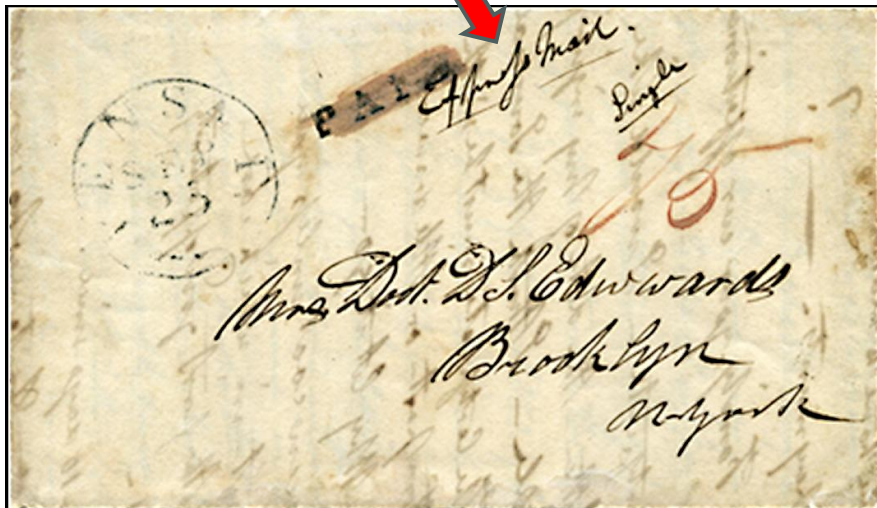 PAID
Express Mail.
Single
PENSA
SEP
25
75
Mrs Doct. D. S. Edwards
Brooklyn
N-York